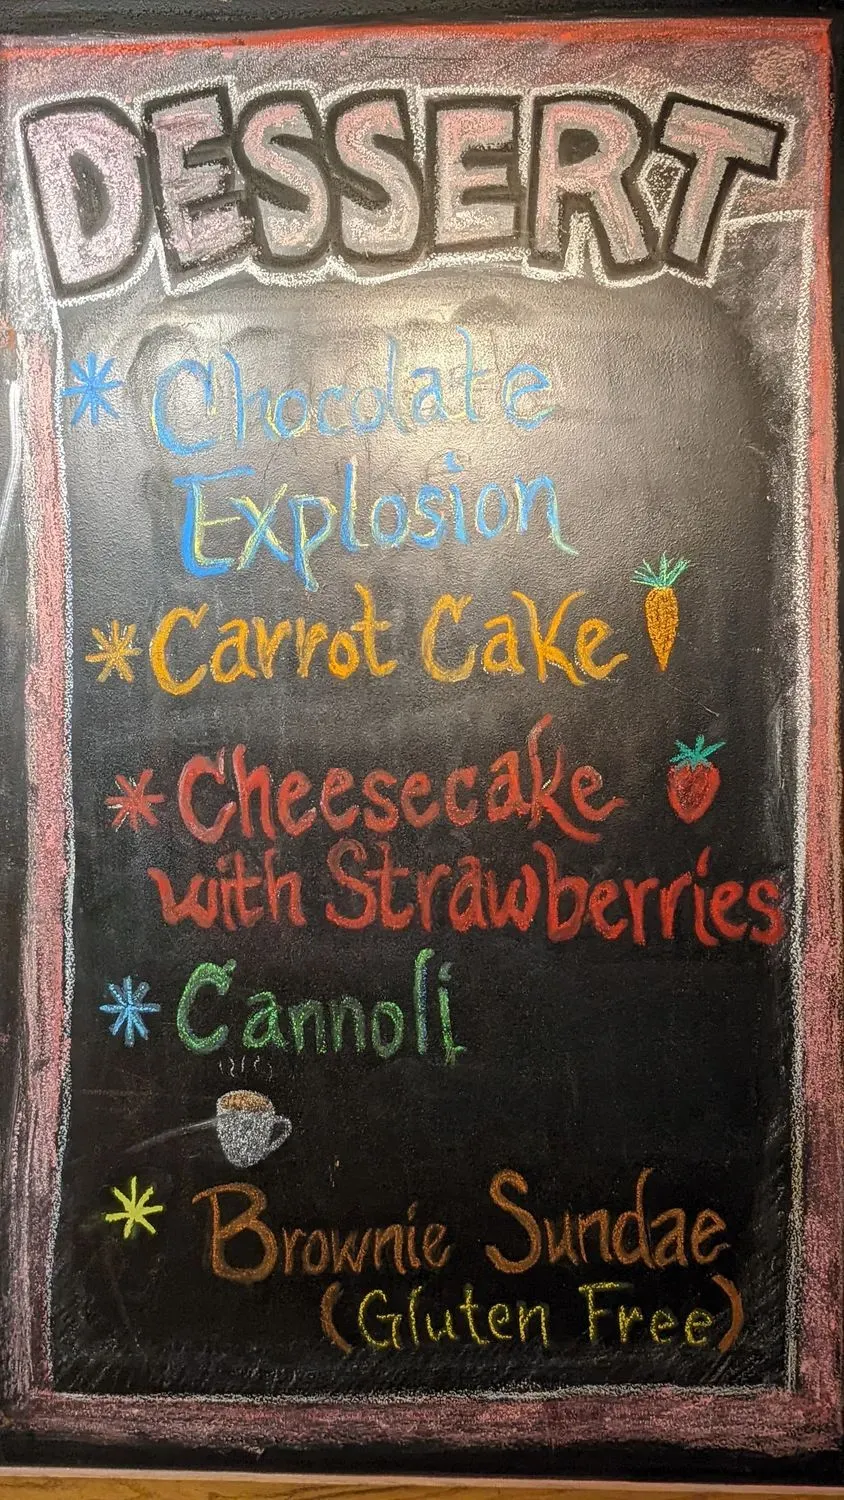 DESSERT
* Chocolate
Explosion
* Carrot Cake
* Cheesecake
with Strawberries
* Cannoli
* Brownie Sundae
(Gluten Free)